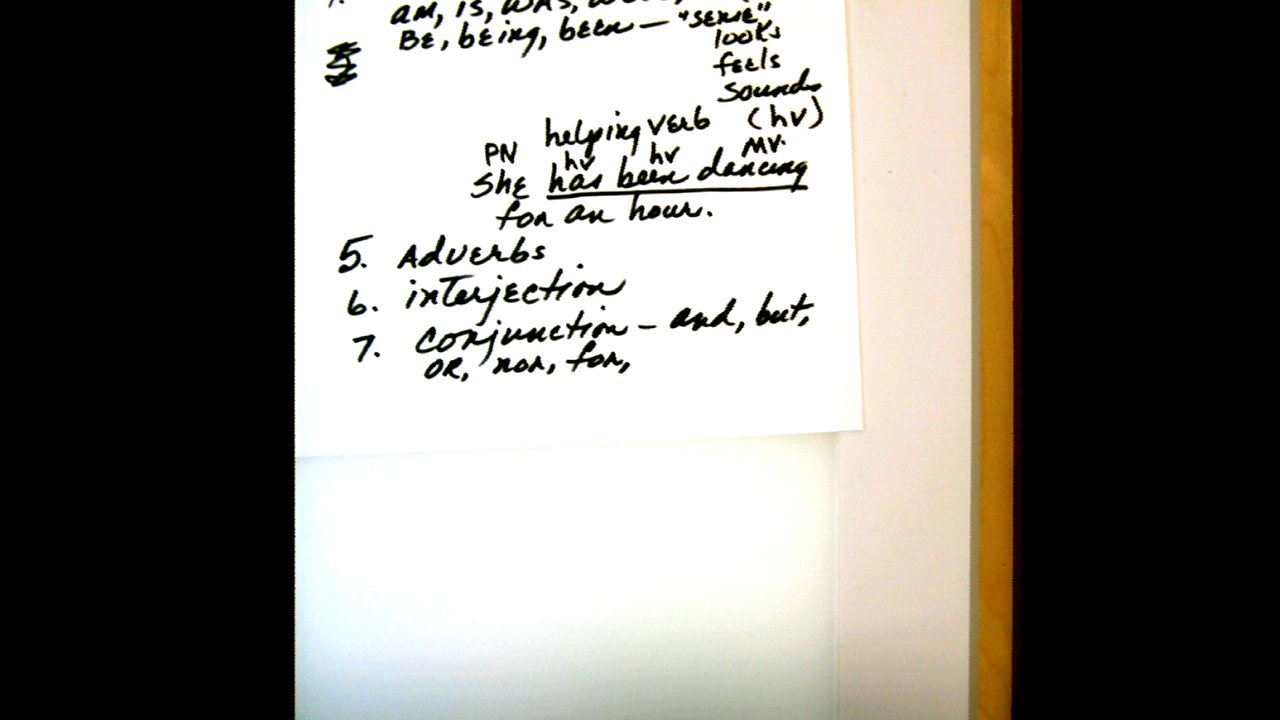 am, is, was,
BE, being, been — "sense"
looks
feels
sounds
helping verb (hv)
PN hv hv MV.
She has been dancing
for an hour.
5. Adverbs
6. interjection
7. conjunction - and, but,
OR, nor, for,